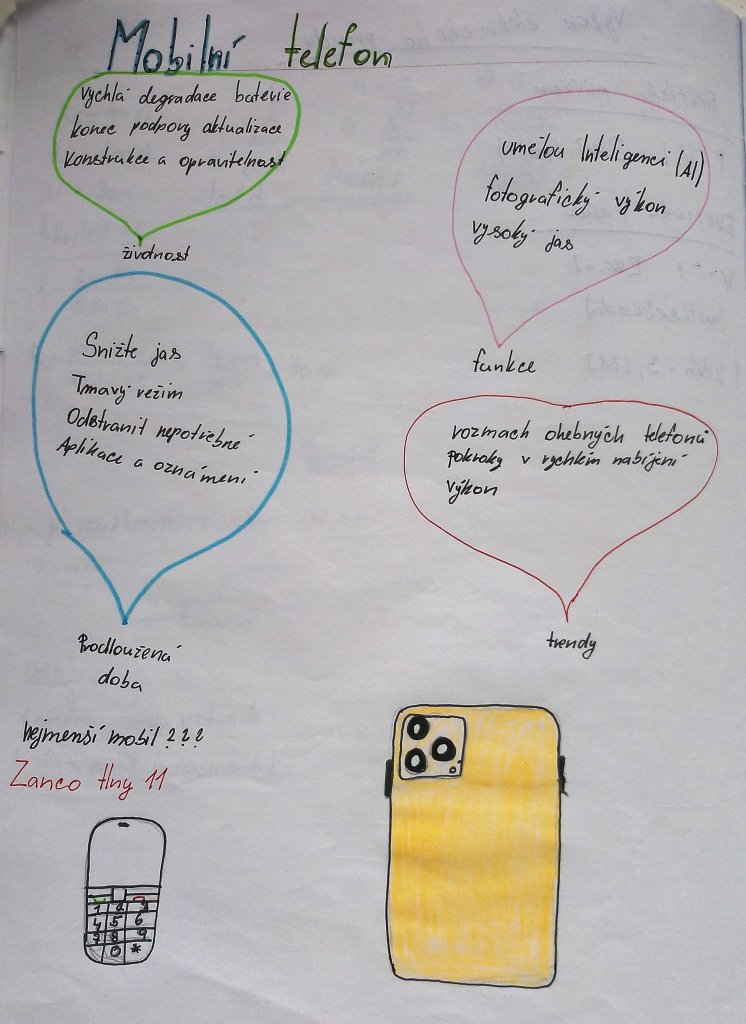 Mobilní telefon
vychlá degradace baterie
konec podpory aktualizace
konstrukce a opravitelnost
životnost
umělou Inteligenci (AI)
fotografický výkon
vysoký jas
funkce
Snižte jas
Tmavý režim
Odstranit nepotřebné
Aplikace a oznámení
Prodloužená
doba
rozmach ohebných telefonů
pokroky v rychlém nabíjení
výkon
trendy
nejmenší mobil ???
Zanco tiny 11
1 2 3
4 5 6
7 8 9
0 *